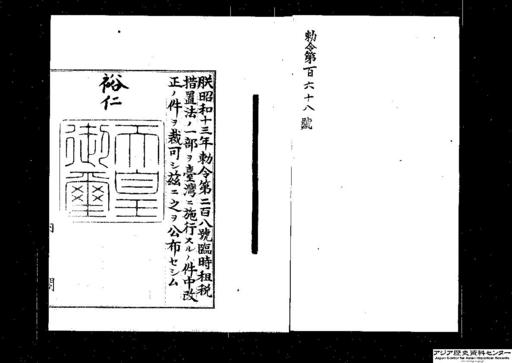 勅令第百六十八號
朕昭和十三年勅令第二百八號臨時租税
措置法ノ一部ヲ臺灣ニ施行スルノ件中改
正ノ件ヲ裁可シ茲ニ之ヲ公布セシム
裕仁
天皇
御璽
内 閣
アジア歴史資料センター
Japan Center for Asian Historical Records